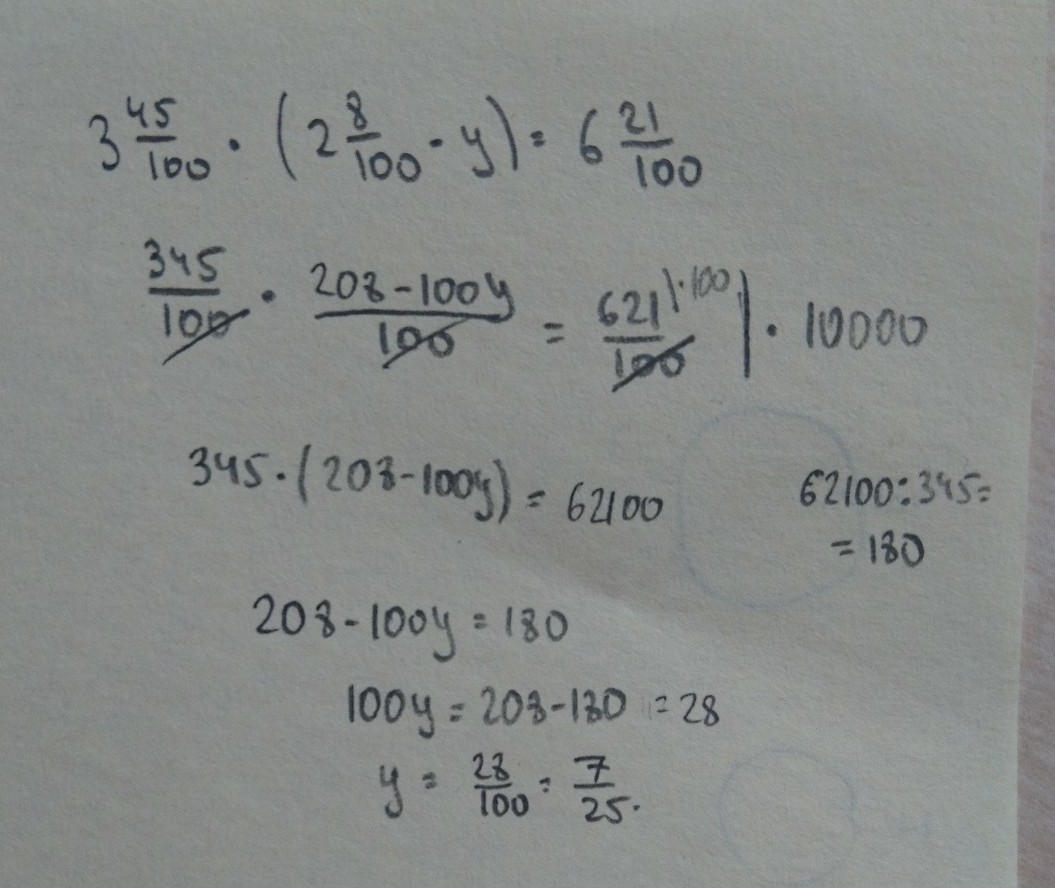 3 45/100 · (2 8/100 - y) = 6 21/100
345/100 · 208-100y/100 = 621/100 |·100 | · 10000
345·(208-100y) = 62100
62100:345=
= 180
208-100y = 180
100y = 208-180 = 28
y = 28/100 = 7/25.